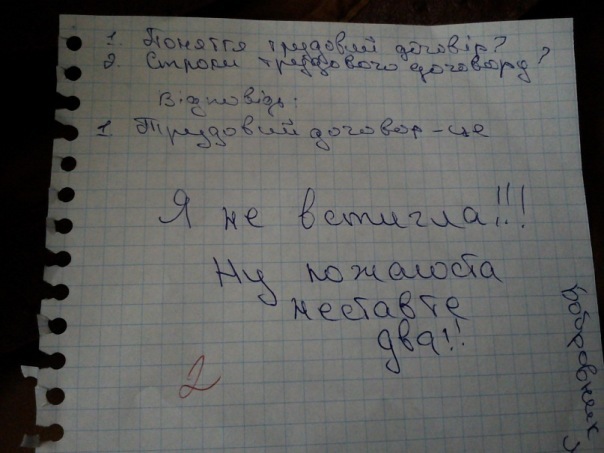 1. Поняття трудовий договір?
2. Строки трудового договору?
Відповідь:
1. Трудовий договор - це
Я не встигла!!!
Ну пожалоста
неставте
два!!
2